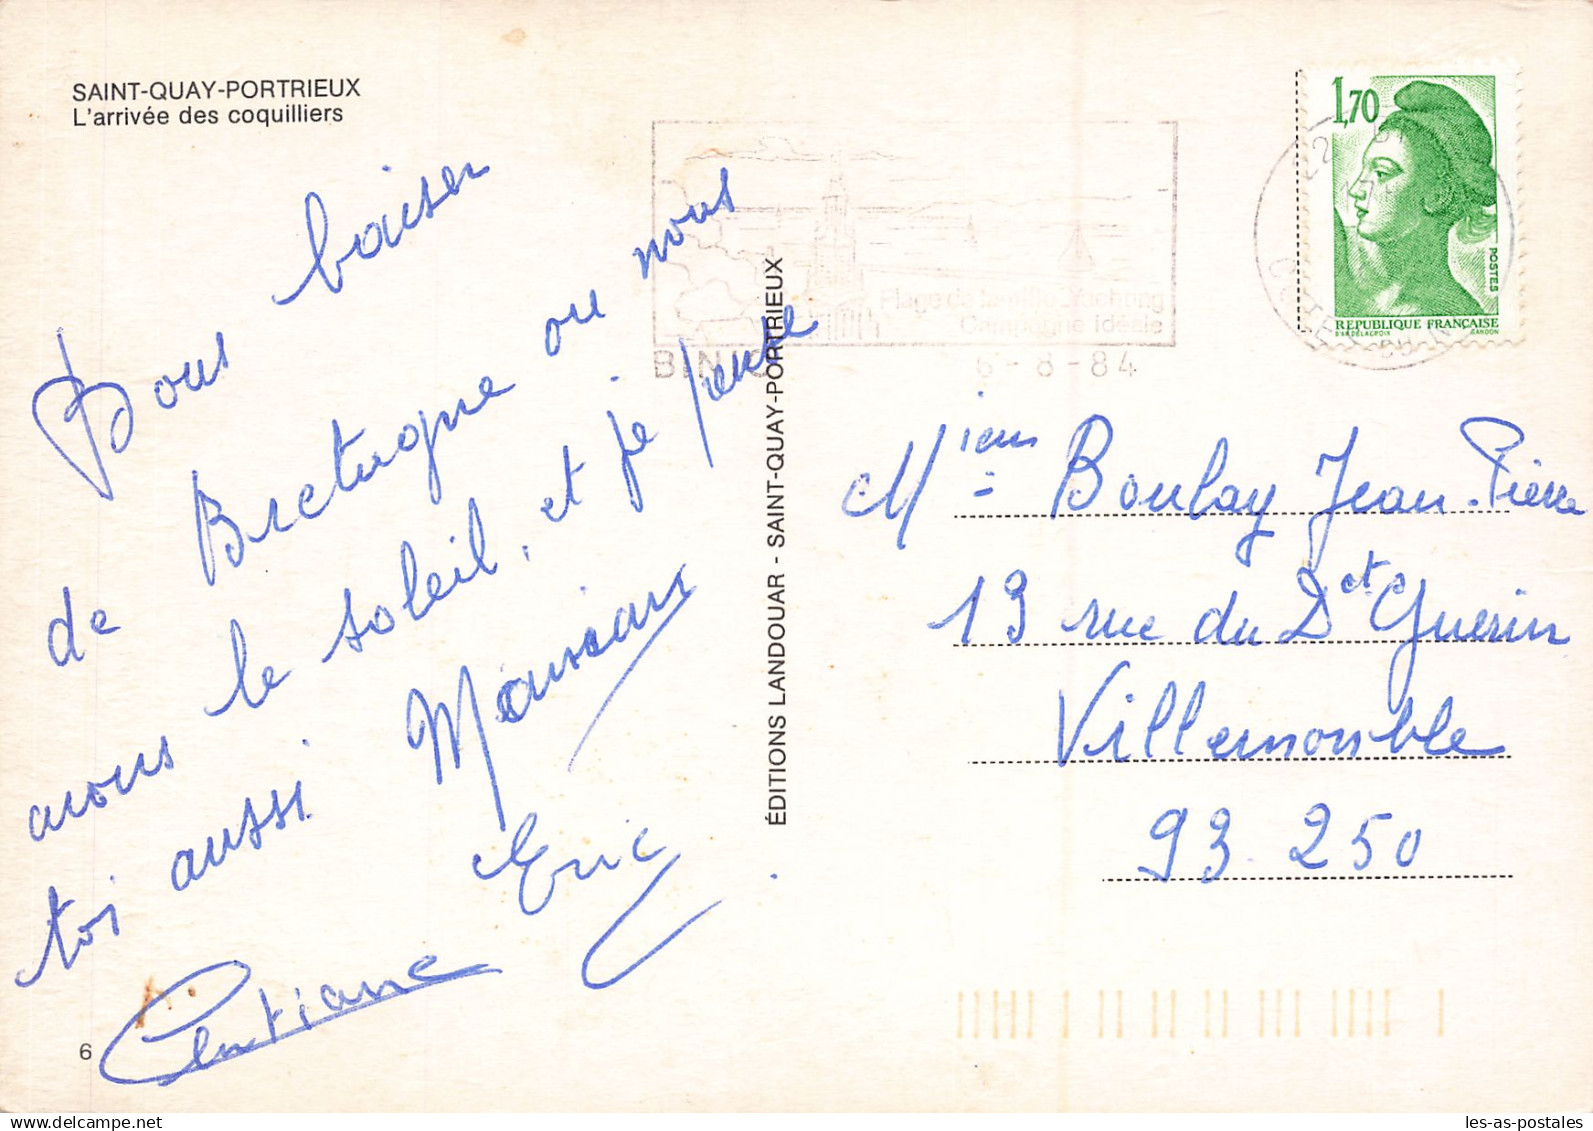 SAINT-QUAY-PORTRIEUX
L'arrivée des coquilliers
Bous baiser
de Bretagne ou nous
avons le soleil, et je pense
toi aussi
Eric
6
ÉDITIONS LANDOUAR - SAINT-QUAY-PORTRIEUX
Plage de famille Yachting
Campagne idéale
BINIC
6-8-84
1,70
POSTES
REPUBLIQUE FRANÇAISE
D'AP. DELACROIX GANDON
Boulay Jean-Pierre
13 rue du Dct Guerin
Villemomble
93 250
les-as-postales